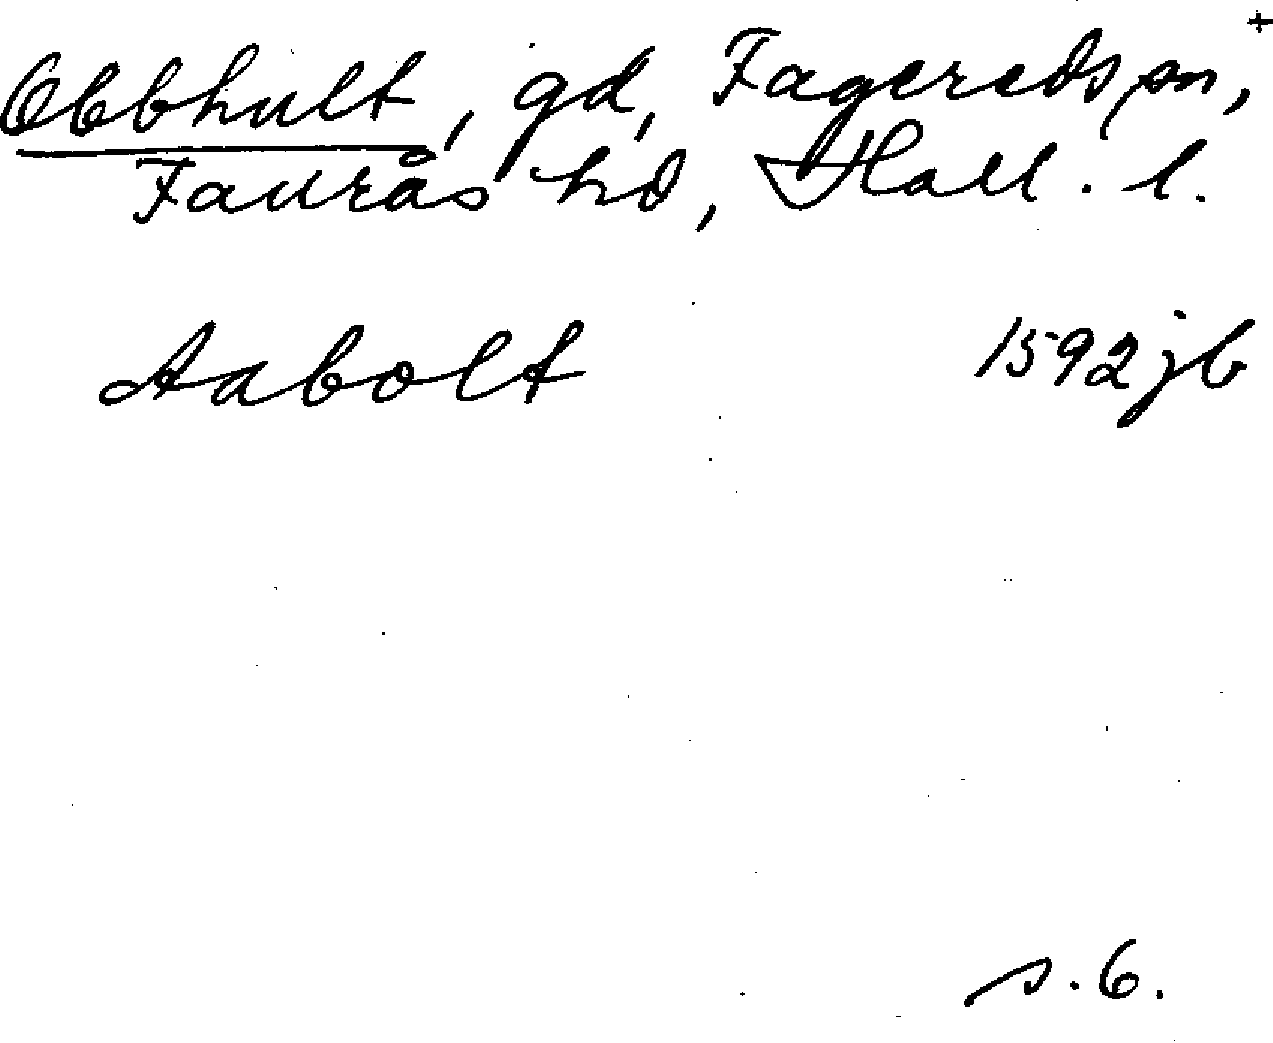 +
Obbhult, gd, Fagereds sn,
Faurås hd, Hall. l.
Aabolt 1592 jb
s. 6.